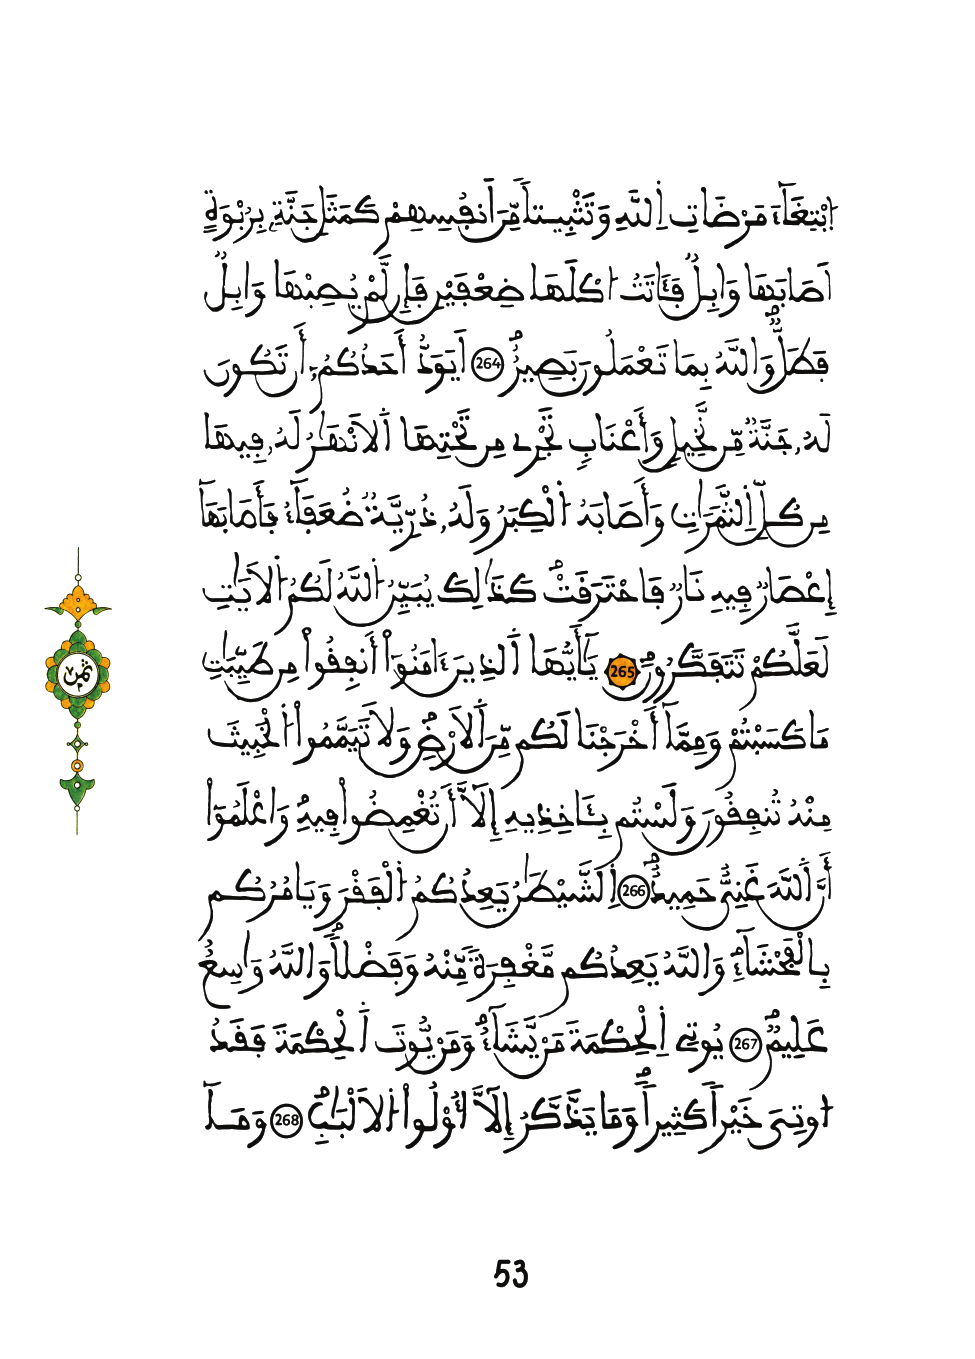 اَ۪بْتِغَآءَ مَرْضَاتِ اِ۬للَّهِ وَتَثْبِيتاٗ مِّنَ اَنفُسِهِمْ كَمَثَلِ جَنَّةِۢ بِرُبْوَةٍ
اَصَابَهَا وَابِلٞ فَـَٔاتَتُ ا۟كْلَهَا ضِعْفَيْنِ فَإِن لَّمْ يُصِبْهَا وَابِلٞ
فَطَلّٞۖ وَاللَّهُ بِمَا تَعْمَلُونَ بَصِيرٌۖ 264 اَيَوَدُّ أَحَدُكُمُۥٓ أَن تَكُونَ
لَهُۥ جَنَّةٞ مِّن نَّخِيلٖ وَأَعْنَابٖ تَجْرِے مِن تَحْتِهَا اَ۬لَانْهَٰرُ لَهُۥ فِيهَا
مِن كُلِّ اِ۬لثَّمَرَٰتِ وَأَصَابَهُ اُ۬لْكِبَرُ وَلَهُۥ ذُرِّيَّةٞ ضُعَفَآءُ فَأَصَابَهَآ
إِعْصَارٞ فِيهِ نَارٞ فَاحْتَرَقَتْۖ كَذَٰلِكَ يُبَيِّنُ اُ۬للَّهُ لَكُمُ اُ۬لَايَٰتِ
لَعَلَّكُمْ تَتَفَكَّرُونَۖ 265 يَٰٓأَيُّهَا اَ۬لذِينَ ءَامَنُوٓاْ أَنفِقُواْ مِن طَيِّبَٰتِ
مَا كَسَبْتُمْ وَمِمَّآ أَخْرَجْنَا لَكُم مِّنَ اَ۬لَارْضِۖ وَلَا تَيَمَّمُواْ اُ۬لْخَبِيثَ
مِنْهُ تُنفِقُونَ وَلَسْتُم بِـَٔاخِذِيهِ إِلَّآ أَن تُغْمِضُواْ فِيهِۖ وَاعْلَمُوٓاْ
أَنَّ اَ۬للَّهَ غَنِيٌّ حَمِيدٌۖ 266 اِ۬لشَّيْطَٰنُ يَعِدُكُمُ اُ۬لْفَقْرَ وَيَامُرُكُم
بِالْفَحْشَآءِۖ وَاللَّهُ يَعِدُكُم مَّغْفِرَةٗ مِّنْهُ وَفَضْلاٗۖ وَاللَّهُ وَٰسِعٌ
عَلِيمٞۖ 267 يُوتِے اِ۬لْحِكْمَةَ مَنْ يَّشَآءُۖ وَمَنْ يُّوتَ اَ۬لْحِكْمَةَ فَقَدُ
ا۟وتِيَ خَيْراٗ كَثِيراٗۖ وَمَا يَذَّكَّرُ إِلَّآ أُوْلُواْ اُ۬لَالْبَٰبِۖ 268 وَمَآ
ثمن
53